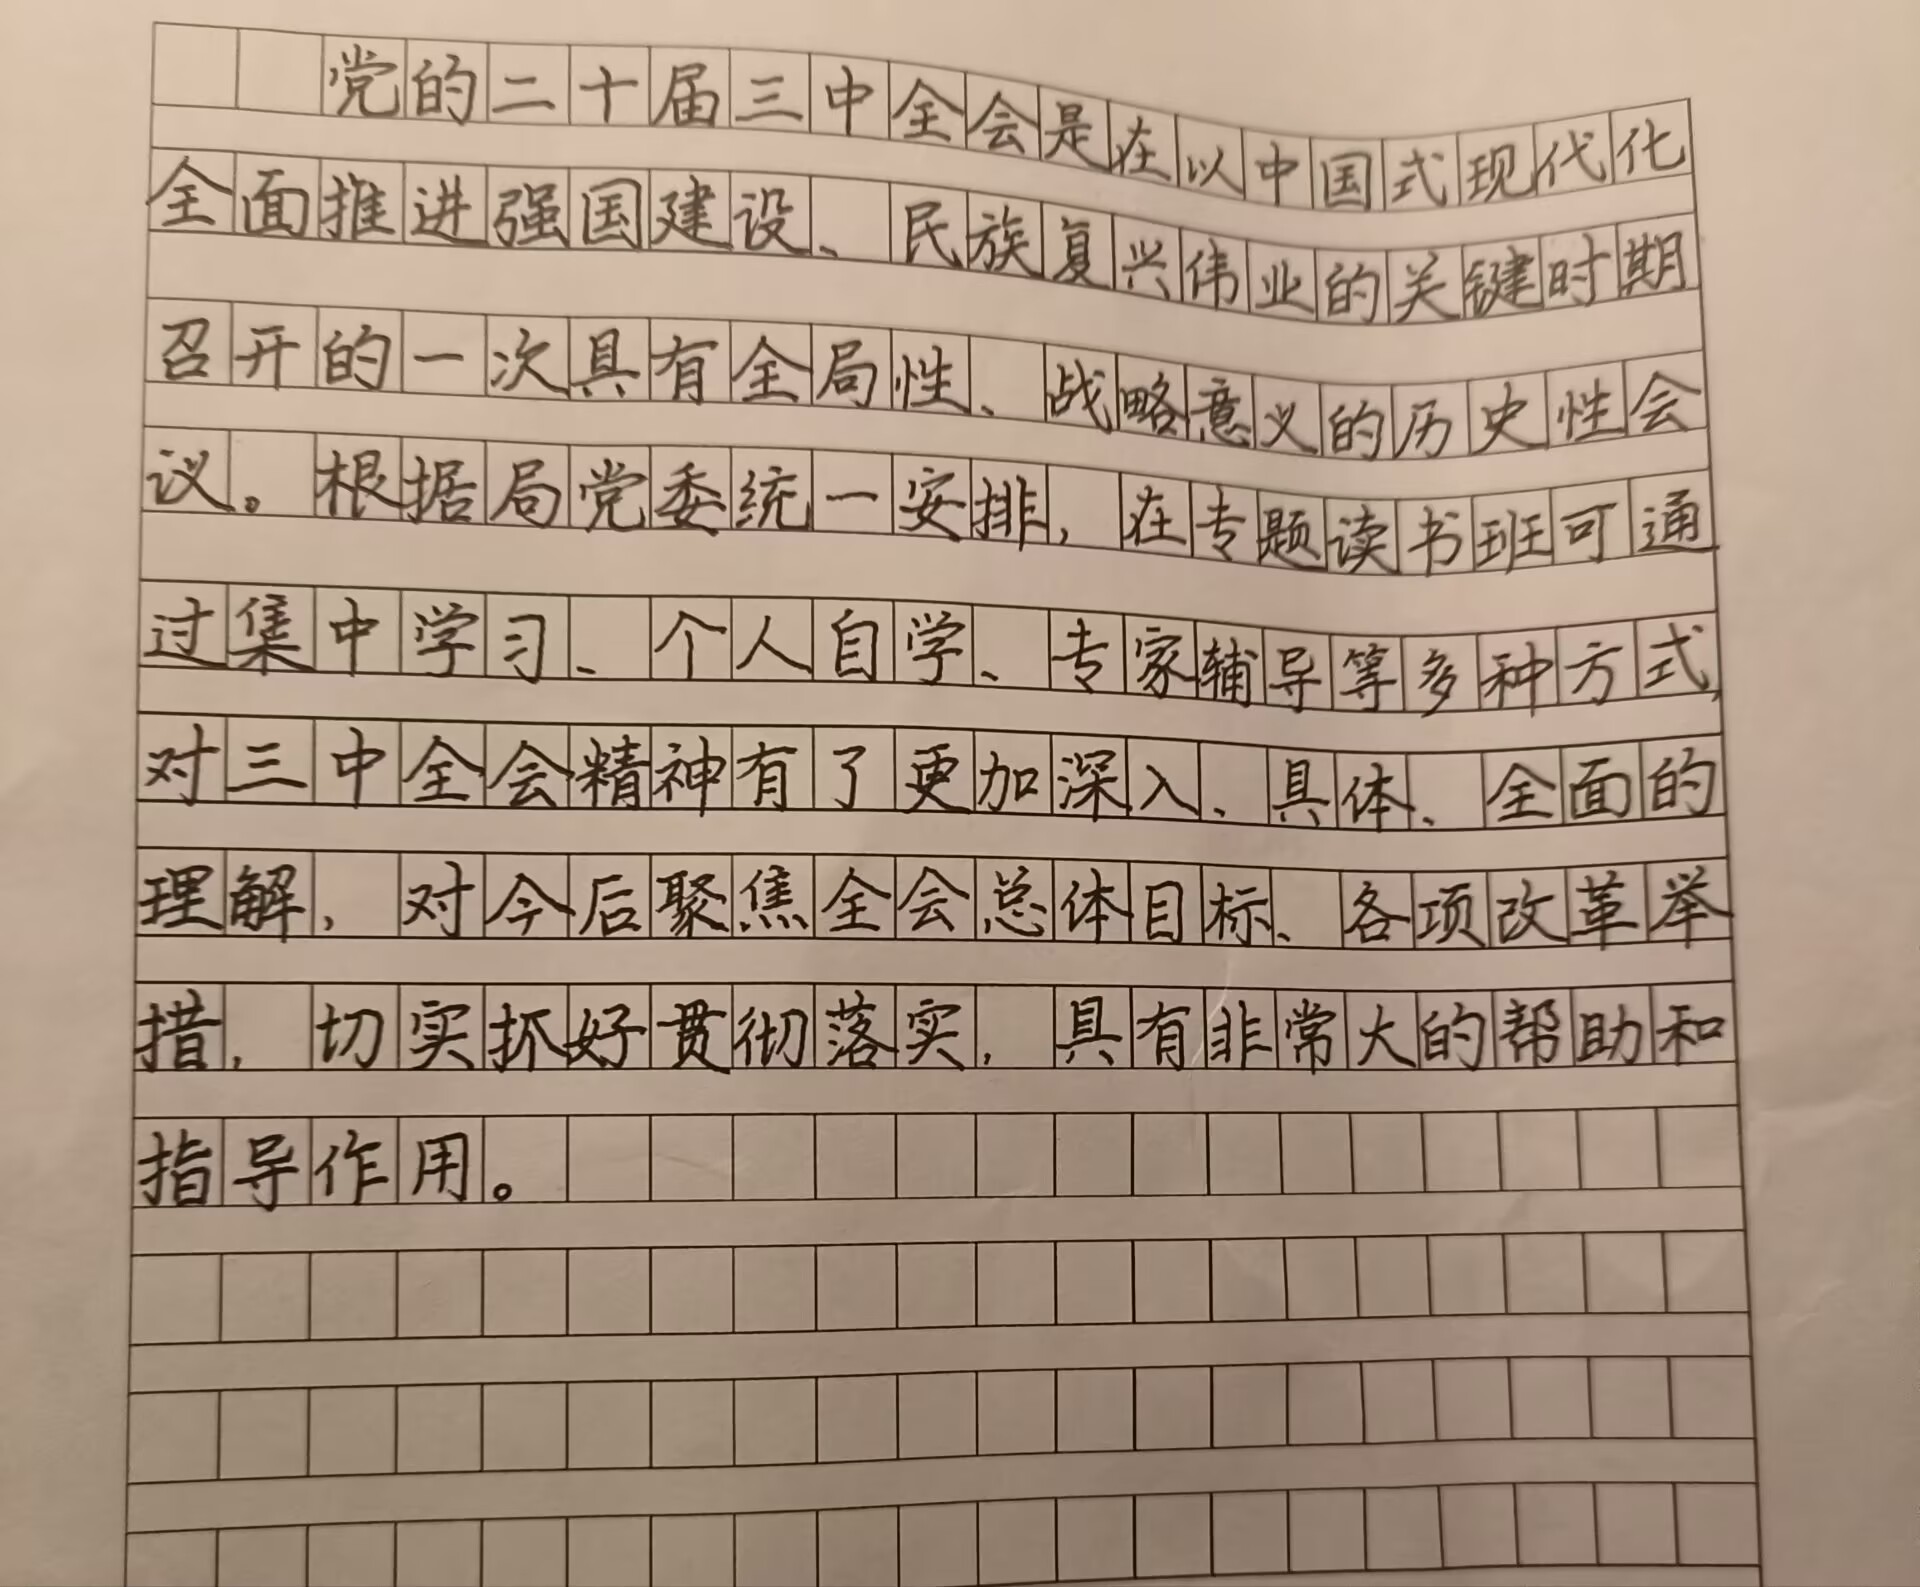 党的二十届三中全会是在以中国式现代化
全面推进强国建设、民族复兴伟业的关键时期
召开的一次具有全局性、战略意义的历史性会
议。根据局党委统一安排,在专题读书班可通
过集中学习、个人自学、专家辅导等多种方式,
对三中全会精神有了更加深入、具体、全面的
理解,对今后聚焦全会总体目标、各项改革举
措,切实抓好贯彻落实,具有非常大的帮助和
指导作用。